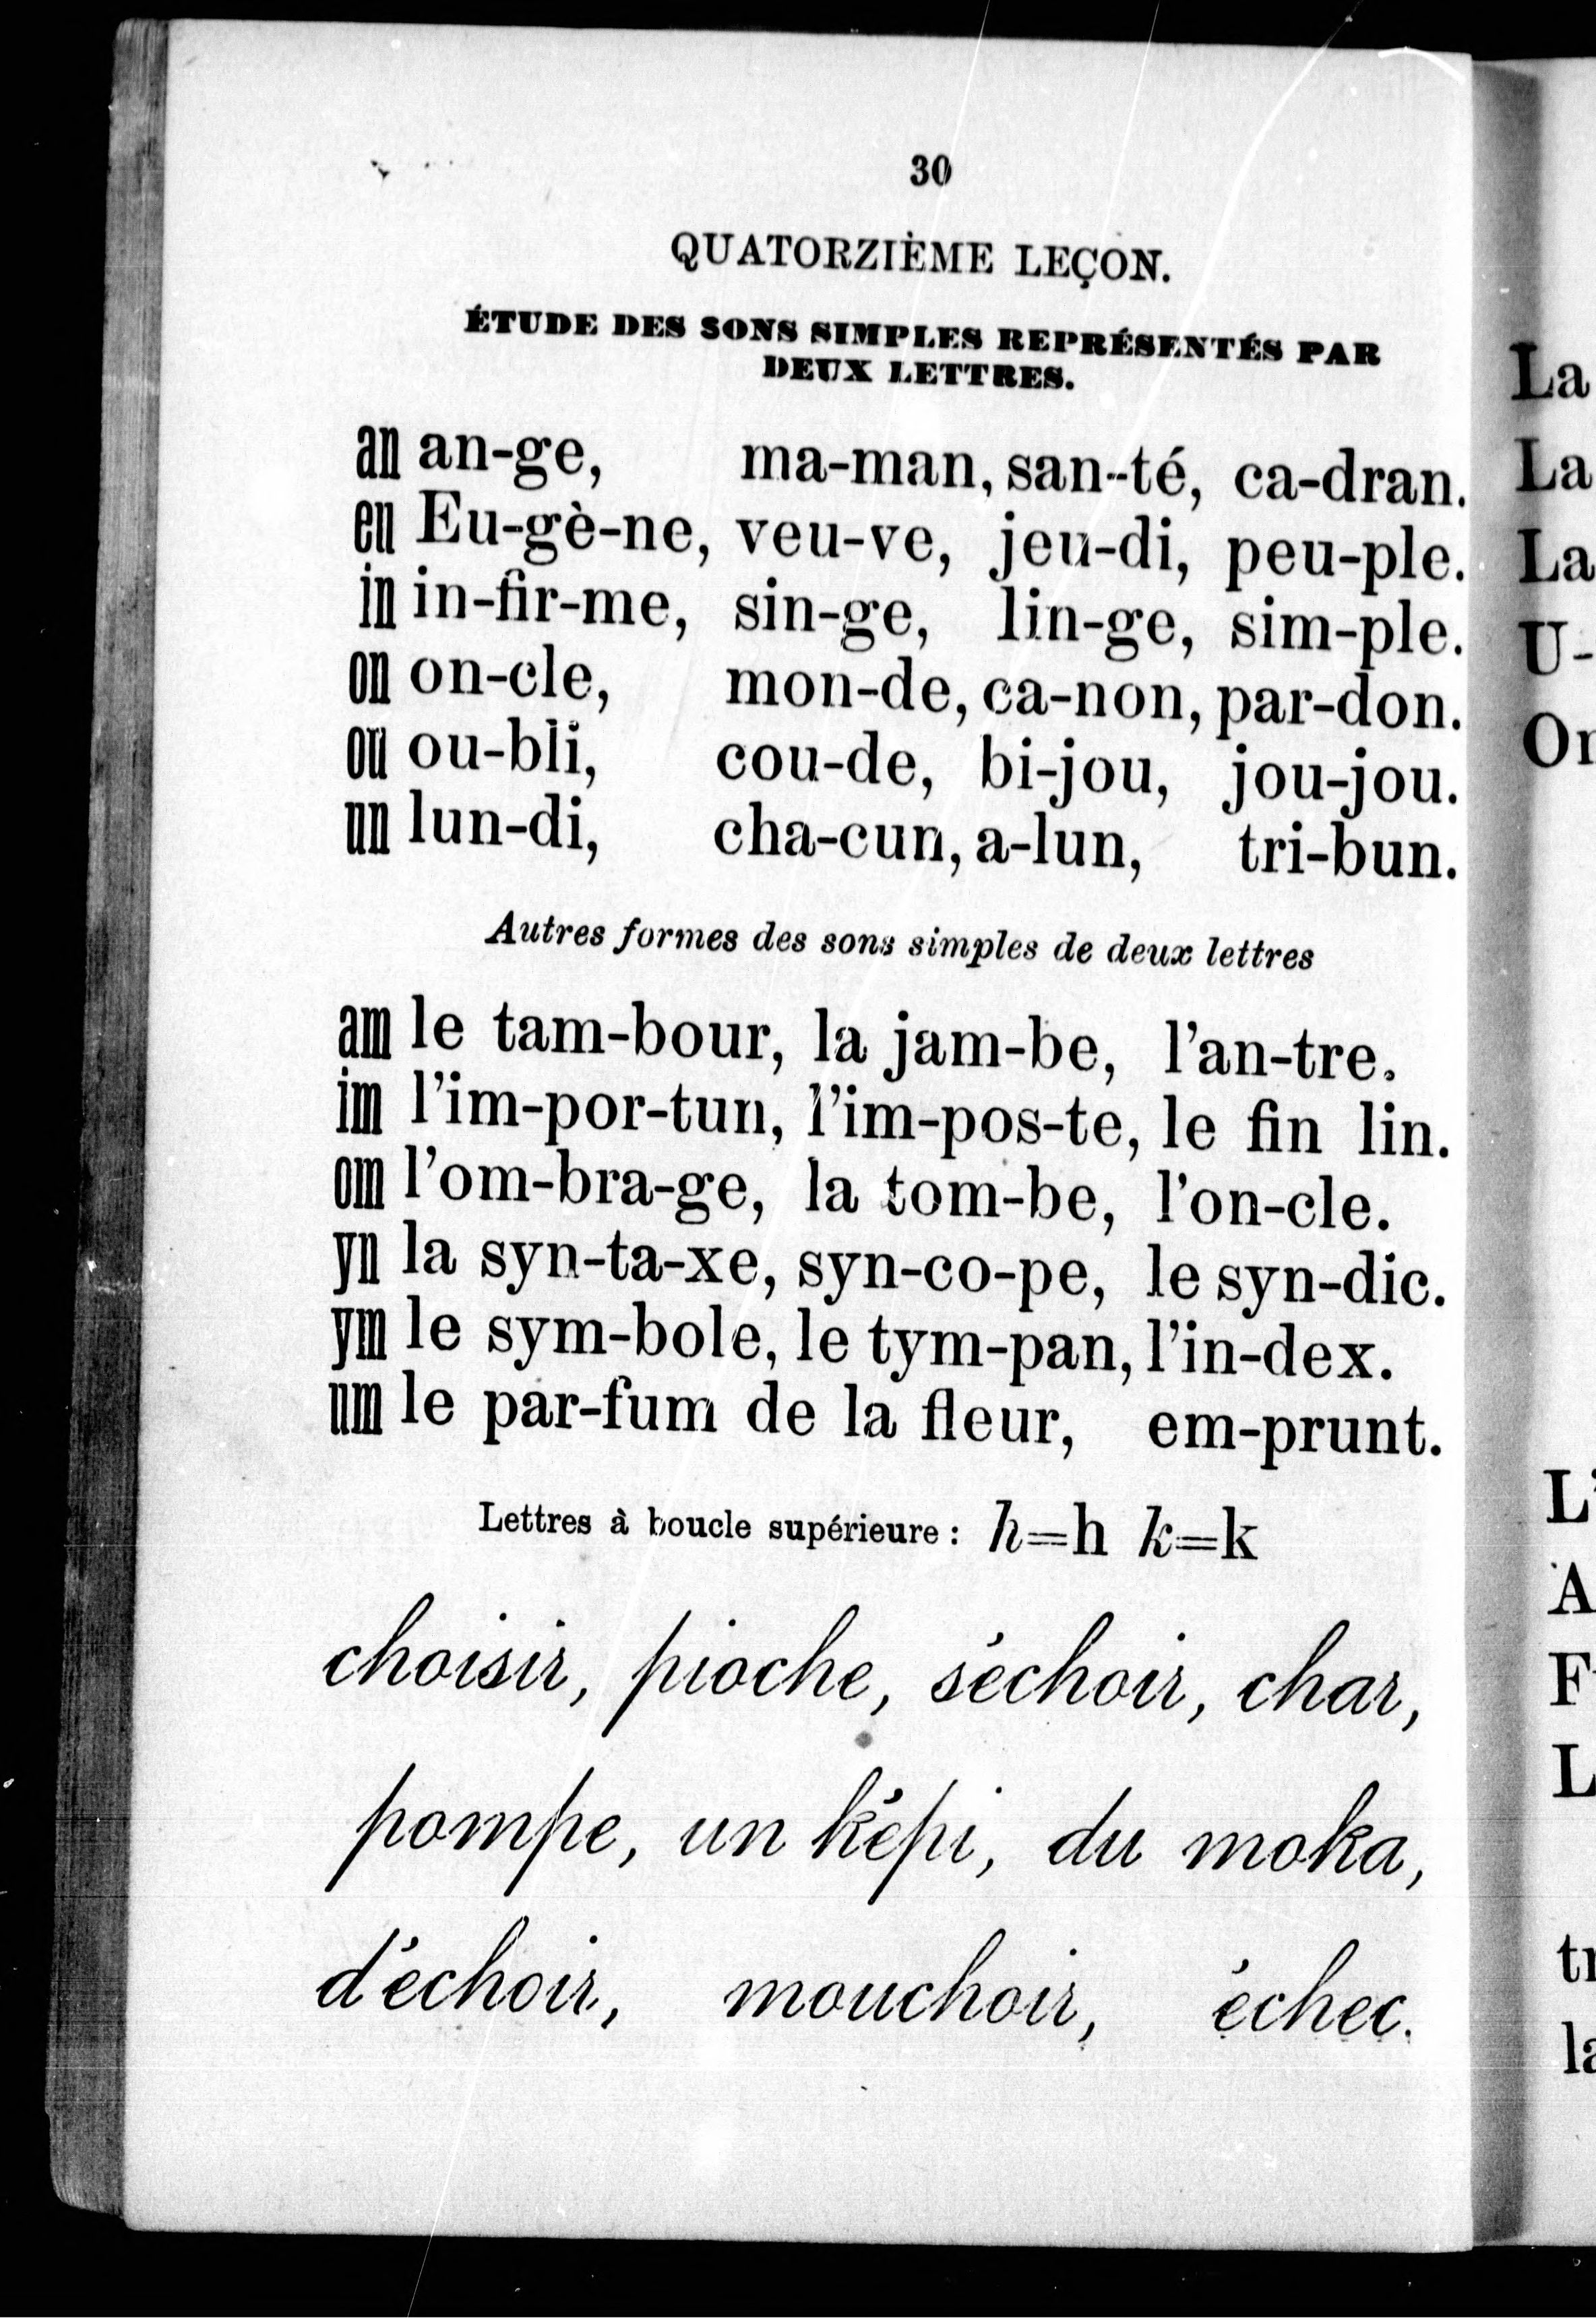 30
QUATORZIÈME LEÇON.
ÉTUDE DES SONS SIMPLES REPRÉSENTÉS PAR
DEUX LETTRES.
an an-ge, ma-man, san-té, ca-dran.
eu Eu-gè-ne, veu-ve, jeu-di, peu-ple.
in in-fir-me, sin-ge, lin-ge, sim-ple.
on on-cle, mon-de, ca-non, par-don.
ou ou-bli, cou-de, bi-jou, jou-jou.
un lun-di, cha-cun, a-lun, tri-bun.
Autres formes des sons simples de deux lettres
am le tam-bour, la jam-be, l'an-tre.
im l'im-por-tun, l'im-pos-te, le fin lin.
om l'om-bra-ge, la tom-be, l'on-cle.
yn la syn-ta-xe, syn-co-pe, le syn-dic.
ym le sym-bole, le tym-pan, l'in-dex.
um le par-fum de la fleur, em-prunt.
Lettres à boucle supérieure : h=h k=k
choisir, pioche, séchoir, char,
pompe, un képi, du moka,
déchoir, mouchoir, échec.
La
La
La
U-
On
L'
A
F
L
tr
la